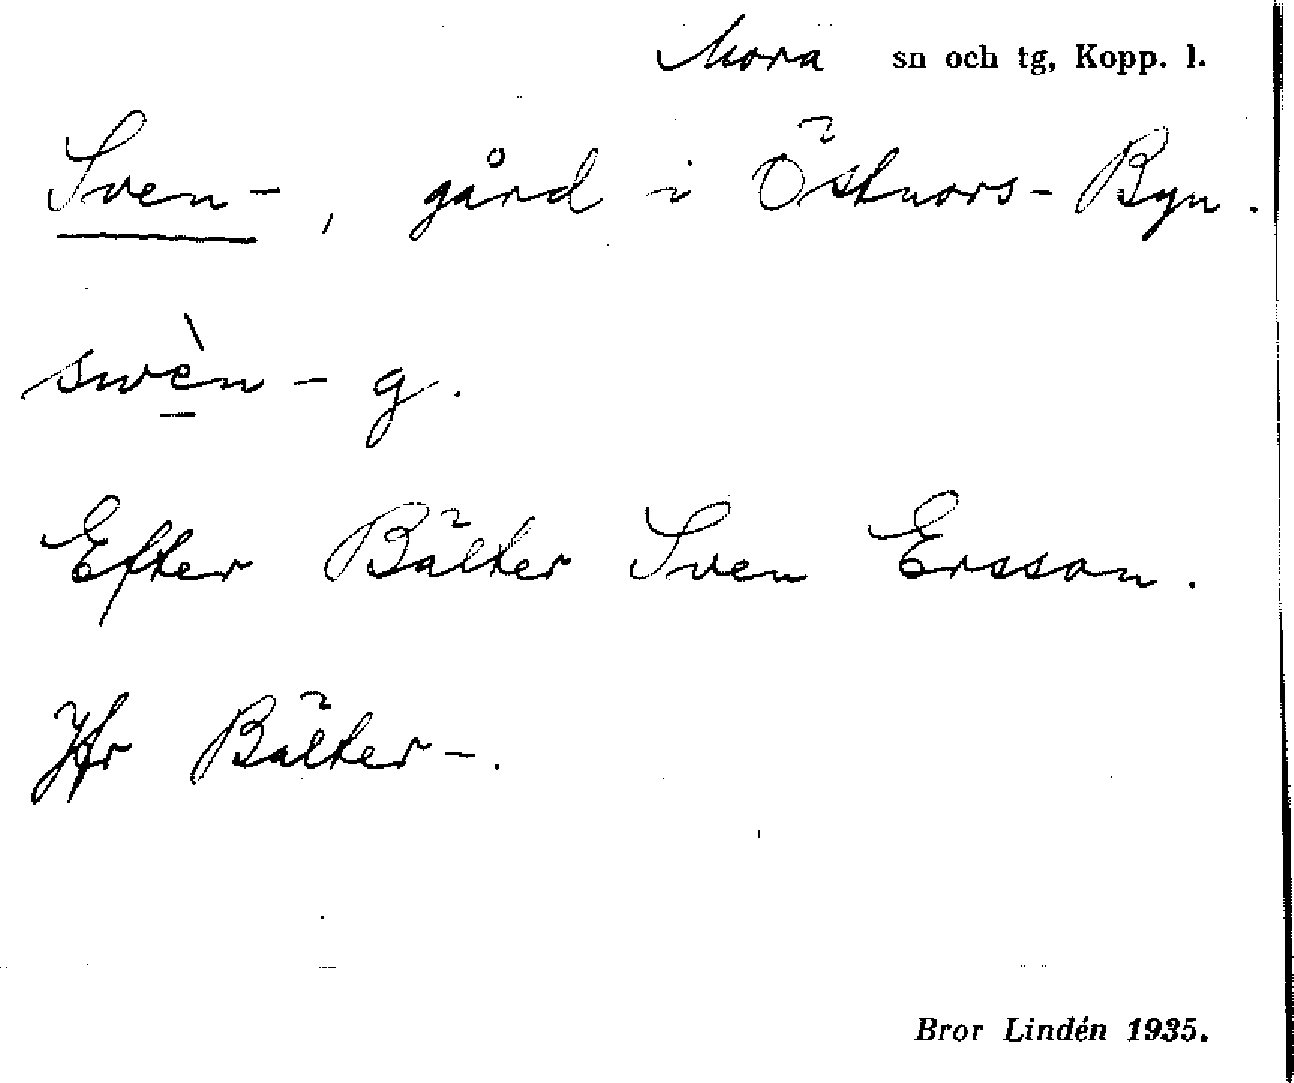 Mora sn och tg, Kopp. l.
Sven-, gård i Östnors-Byn.
swèn- g.
Efter Bälter Sven Ersson.
Jfr Bälter-.
Bror Lindén 1935.